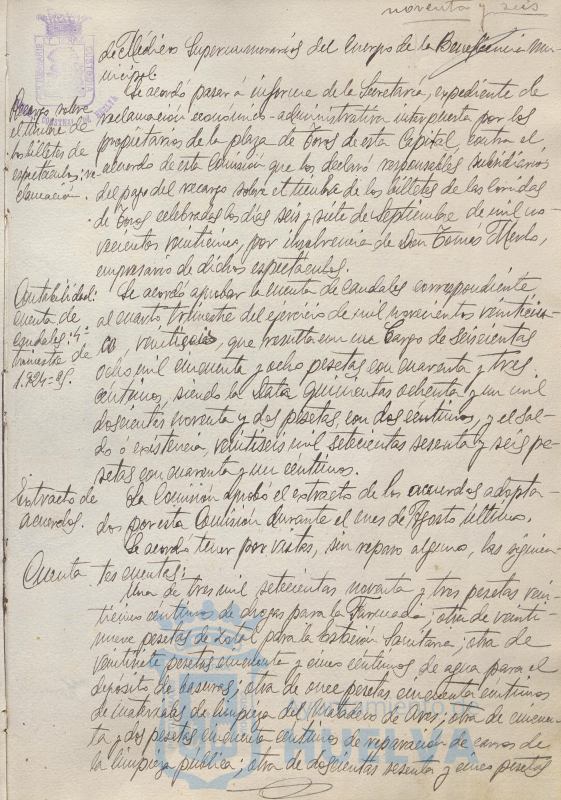 noventa y seis
de Médicos Supernumerarios del Cuerpo de la Beneficencia mu-
nicipal.
Recargo sobre
el timbre de
los billetes de
espectáculos; re-
clamación.
Se acordó pasar á informe de la Secretaría, expediente de
reclamación económico-administrativa interpuesta por los
propietarios de la plaza de Toros de esta Capital, contra el
acuerdo de esta Comisión que los declaró responsables subsidiarios
del pago del recargo sobre el timbre de los billetes de las corridas
de Toros celebradas los días seis y siete de Septiembre de mil no-
vecientos veinticinco, por insolvencia de Don Tomás Merlo,
empresario de dichos espectáculos.
Contabilidad:
cuenta de
caudales: 4º
trimestre de
1.924=25.
Se acordó aprobar la cuenta de caudales correspondiente
al cuarto trimestre del ejercicio de mil novecientos veinticin-
co, veintiseis, que resulta con un Cargo de seiscientas
ocho mil cincuenta y ocho pesetas con cuarenta y tres
céntimos, siendo la Data quinientas ochenta y un mil
doscientas noventa y dos pesetas, con dos centimos, y el sal-
do ó existencia, veintiseis mil setecientas sesenta y seis pe-
setas con cuarenta y un céntimos.
Extracto de
acuerdos.
La Comisión aprobó el extracto de los acuerdos adopta-
dos por esta Comisión durante el mes de Agosto último.
Se acordó tener por vistas, sin reparo alguno, las siguien-
Cuenta
tes cuentas:
Una de tres mil setecientas noventa y tres pesetas vein-
ticinco centimos de drogas para la Farmacia; otra de veinti-
nueve pesetas de zotal para la Estación Sanitaria; otra de
veintisiete pesetas cincuenta y cinco céntimos de agua para el
depósito de basuras; otra de once pesetas cincuenta centimos
de materiales de limpieza del Matadero de Aves; otra de cincuen-
ta y dos pesetas cincuenta centimos de reparación de carros de
la limpieza pública; otra de doscientas sesenta y cinco pesetas
Ayuntamiento de
HUELVA